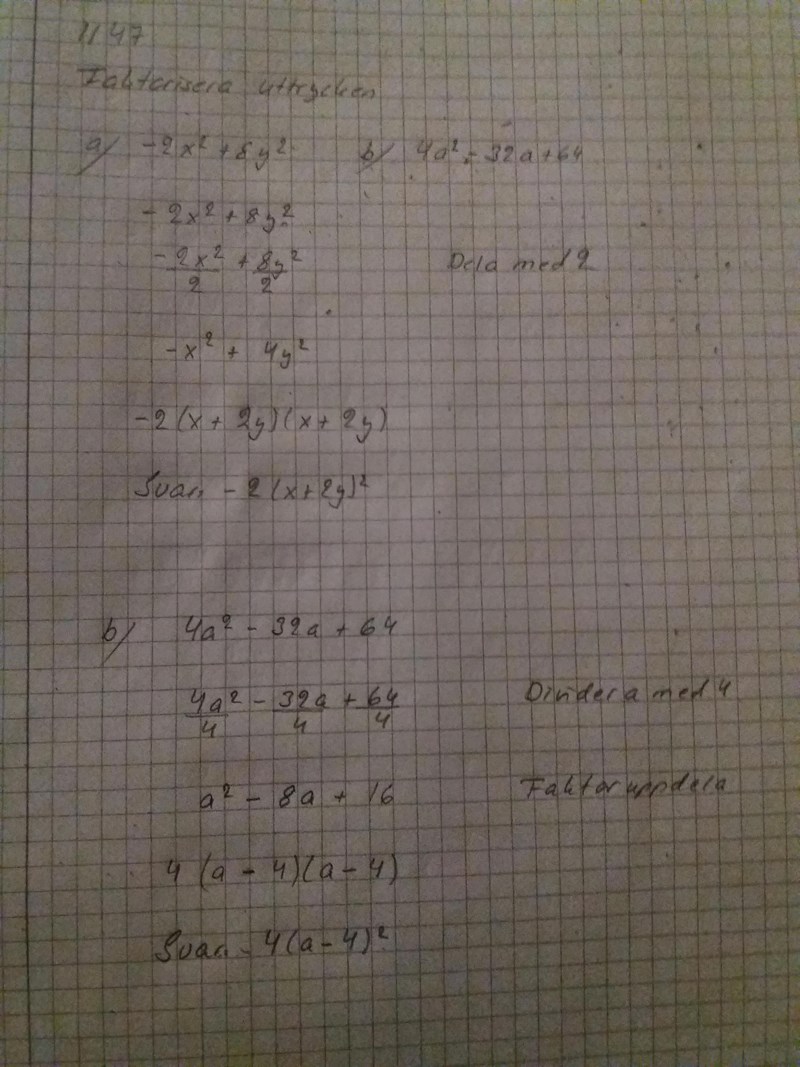 1147
Faktorisera uttrycken
a) -2x² + 8y² b) 4a² - 32a + 64
- 2x² + 8y²
-2x²/2 + 8y²/2 Dela med 2
-x² + 4y²
-2(x + 2y)(x + 2y)
Svar - 2(x+2y)²
b) 4a² - 32a + 64
4a²/4 - 32a/4 + 64/4 Dividera med 4
a² - 8a + 16 Faktoruppdela
4(a - 4)(a - 4)
Svar - 4(a-4)²